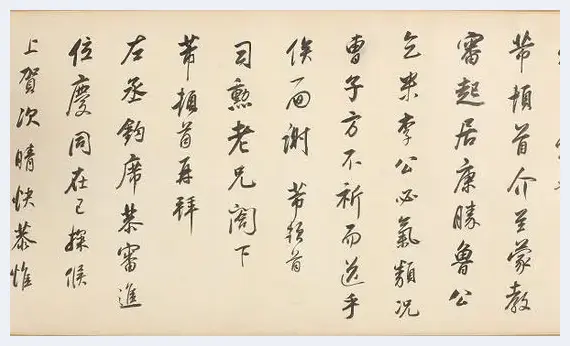 芾頓首介至蒙教
審起居康勝魯公
乞米李公必氣類况
曹子方不祈而送乎
俟面謝芾頓首
司勳老兄閣下
芾頓首再拜
左丞鈞席恭審進
位慶同在已探候
上賀次晴快恭惟